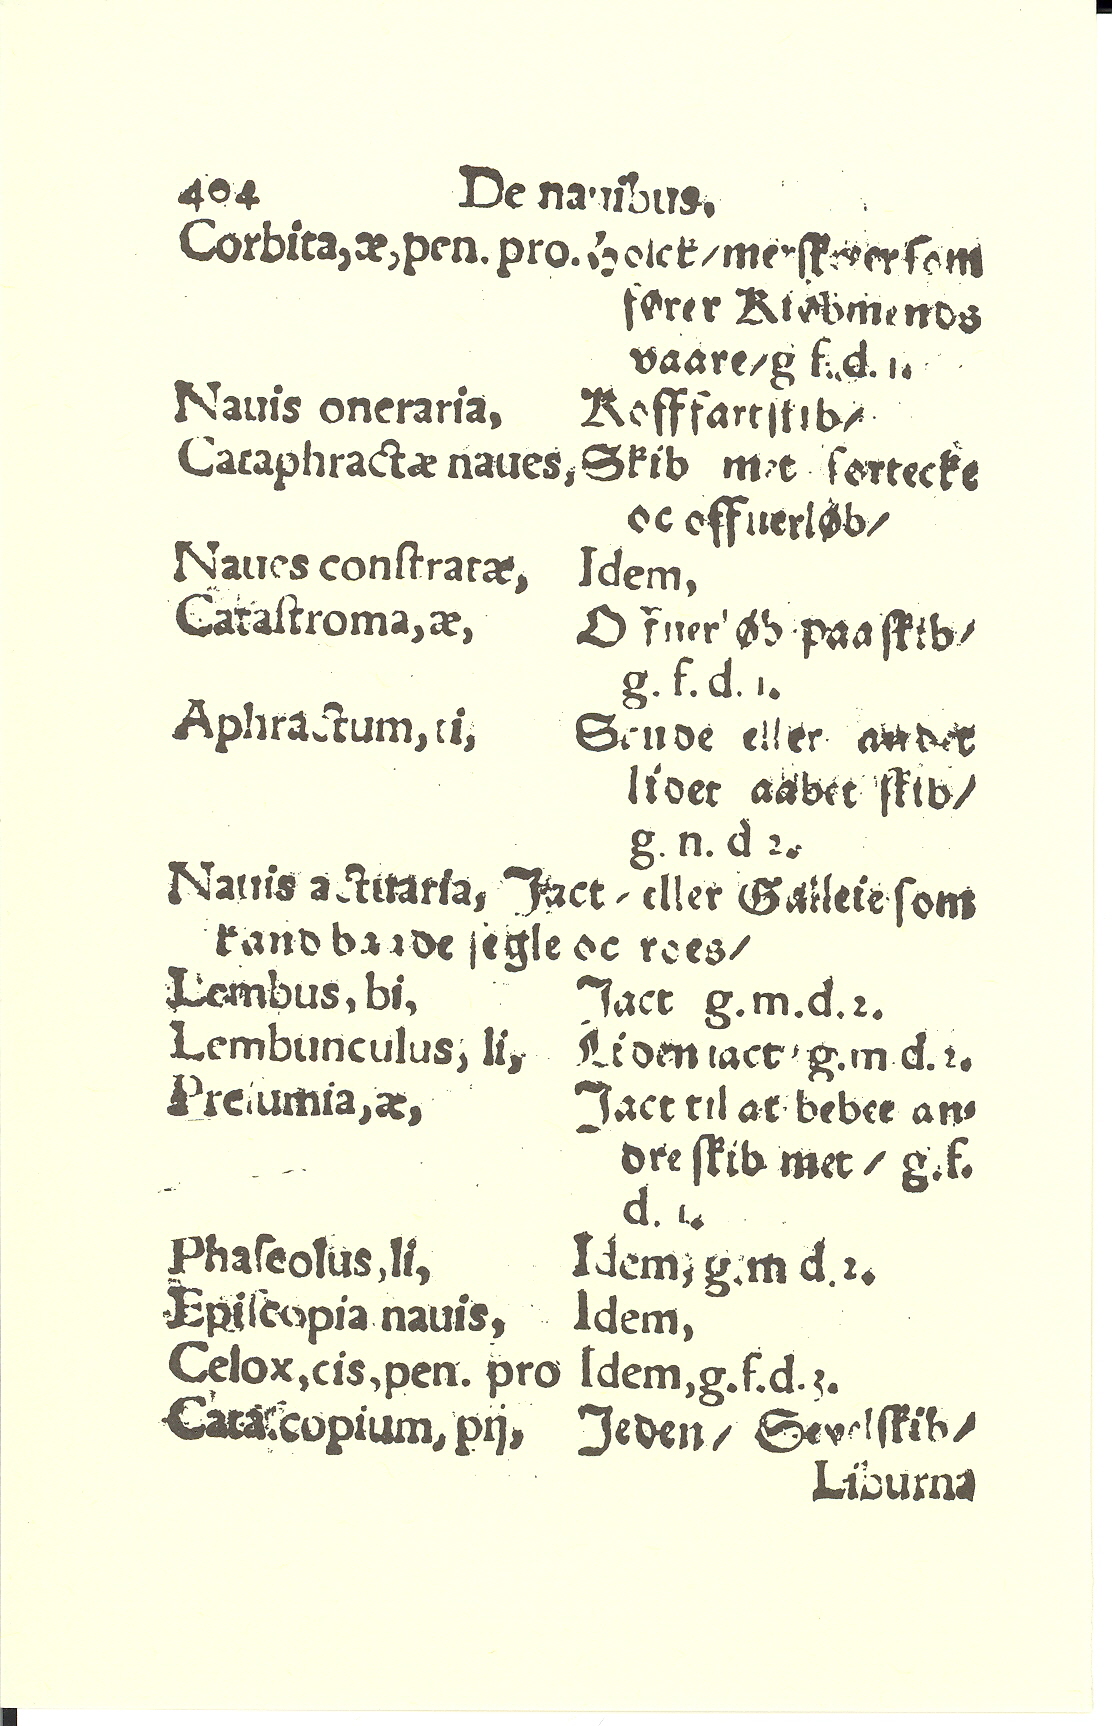 404 De nauibus.
Corbita, æ, pen. pro. Holck / merskwer som
fører Kiøbmends
vaare / g f. d. 1.
Nauis oneraria, Kofffartskib /
Cataphractæ naues, Skib met fortecke
oc offuerløb /
Naues conſtratæ, Idem,
Cataſtroma, æ, Offuerløb paa ſkib /
g. f. d. 1.
Aphractum, ti, Scude eller andet
lidet aabet ſkib /
g. n. d 2.
Nauis actuaria, Jact / eller Galleie ſom
kand baade ſegle oc roes /
Lembus, bi, Jact g. m. d. 2.
Lembunculus, li, Liden iact g. m d. 2.
æ, Jact til at an⸗
dre ſkib met / g. f.
d. 1.
Phaſeolus, li, Idem, g. m d. 2.
Epiſcopia nauis, Idem,
Celox, cis, pen. pro Idem, g. f. d. 3.
Cataſcopium, pij, Jeden / ſkib /
Liburna